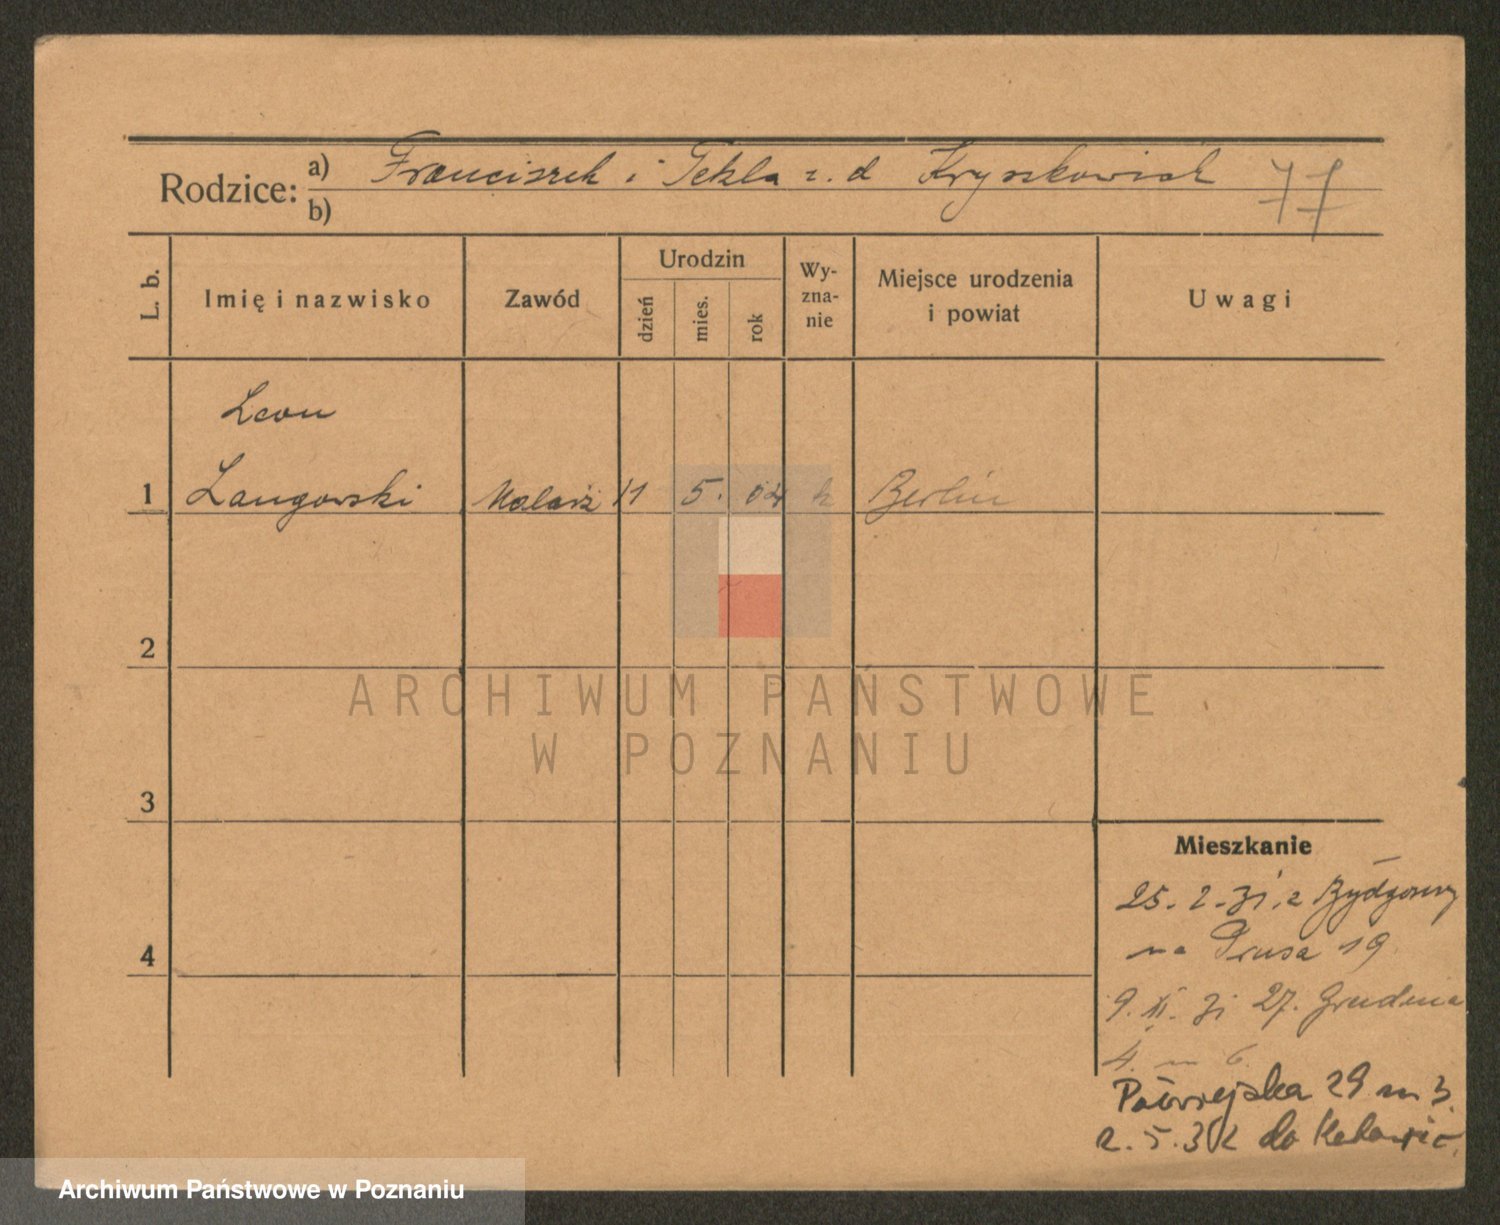 Rodzice: a) Franciszek i Tekla z. d Kryszkowiak 77
b)
L. b. Imię i nazwisko Zawód Urodzin dzień mies. rok Wy-zna-nie Miejsce urodzenia i powiat Uwagi
Leon
1 Langowski Malarz 11 5. 04 k Berlin
2
ARCHIWUM PAŃSTWOWE
W POZNANIU
3
Mieszkanie
25. 2. 31. z Bydgoszczy
na Prusa 19
4
9. XI. 31 27. Grudnia
4. m 6.
Półwiejska 29 m 3.
2. 5. 32 do Katowic.
Archiwum Państwowe w Poznaniu